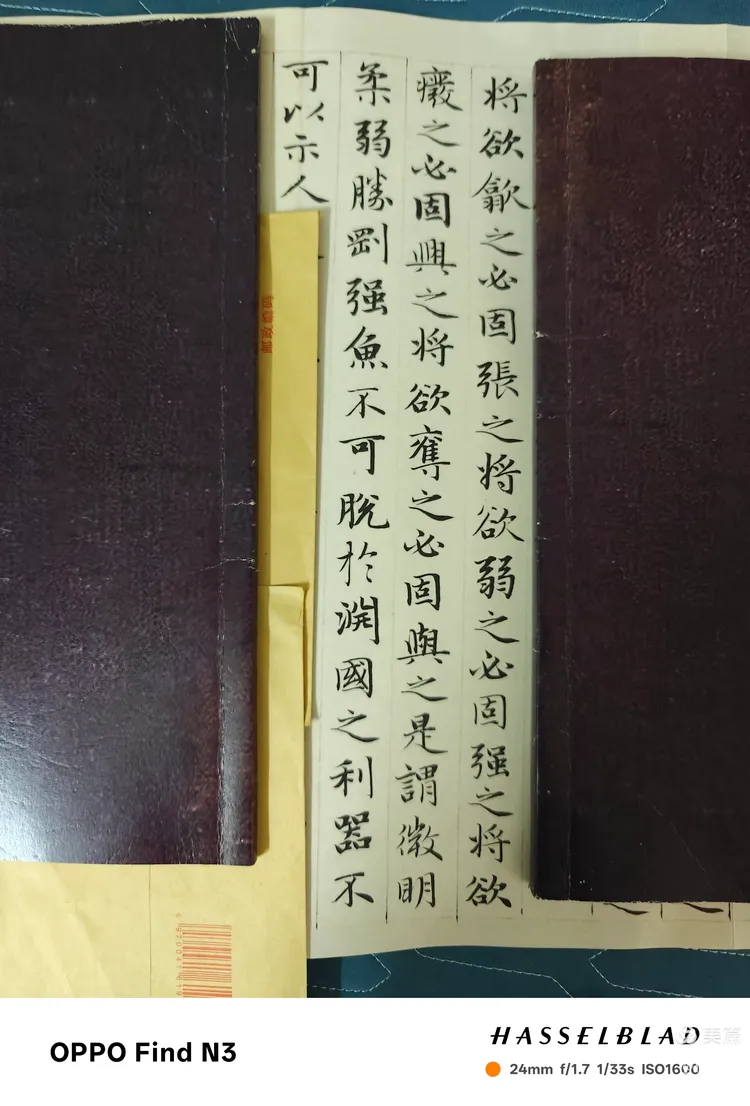 将欲歙之必固張之将欲弱之必固强之将欲
癈之必固興之将欲奪之必固與之是謂微明
柔弱勝剛强魚不可脱於淵國之利器不
可以示人
OPPO Find N3
HASSELBLAD
美篇
24mm f/1.7 1/33s ISO1600